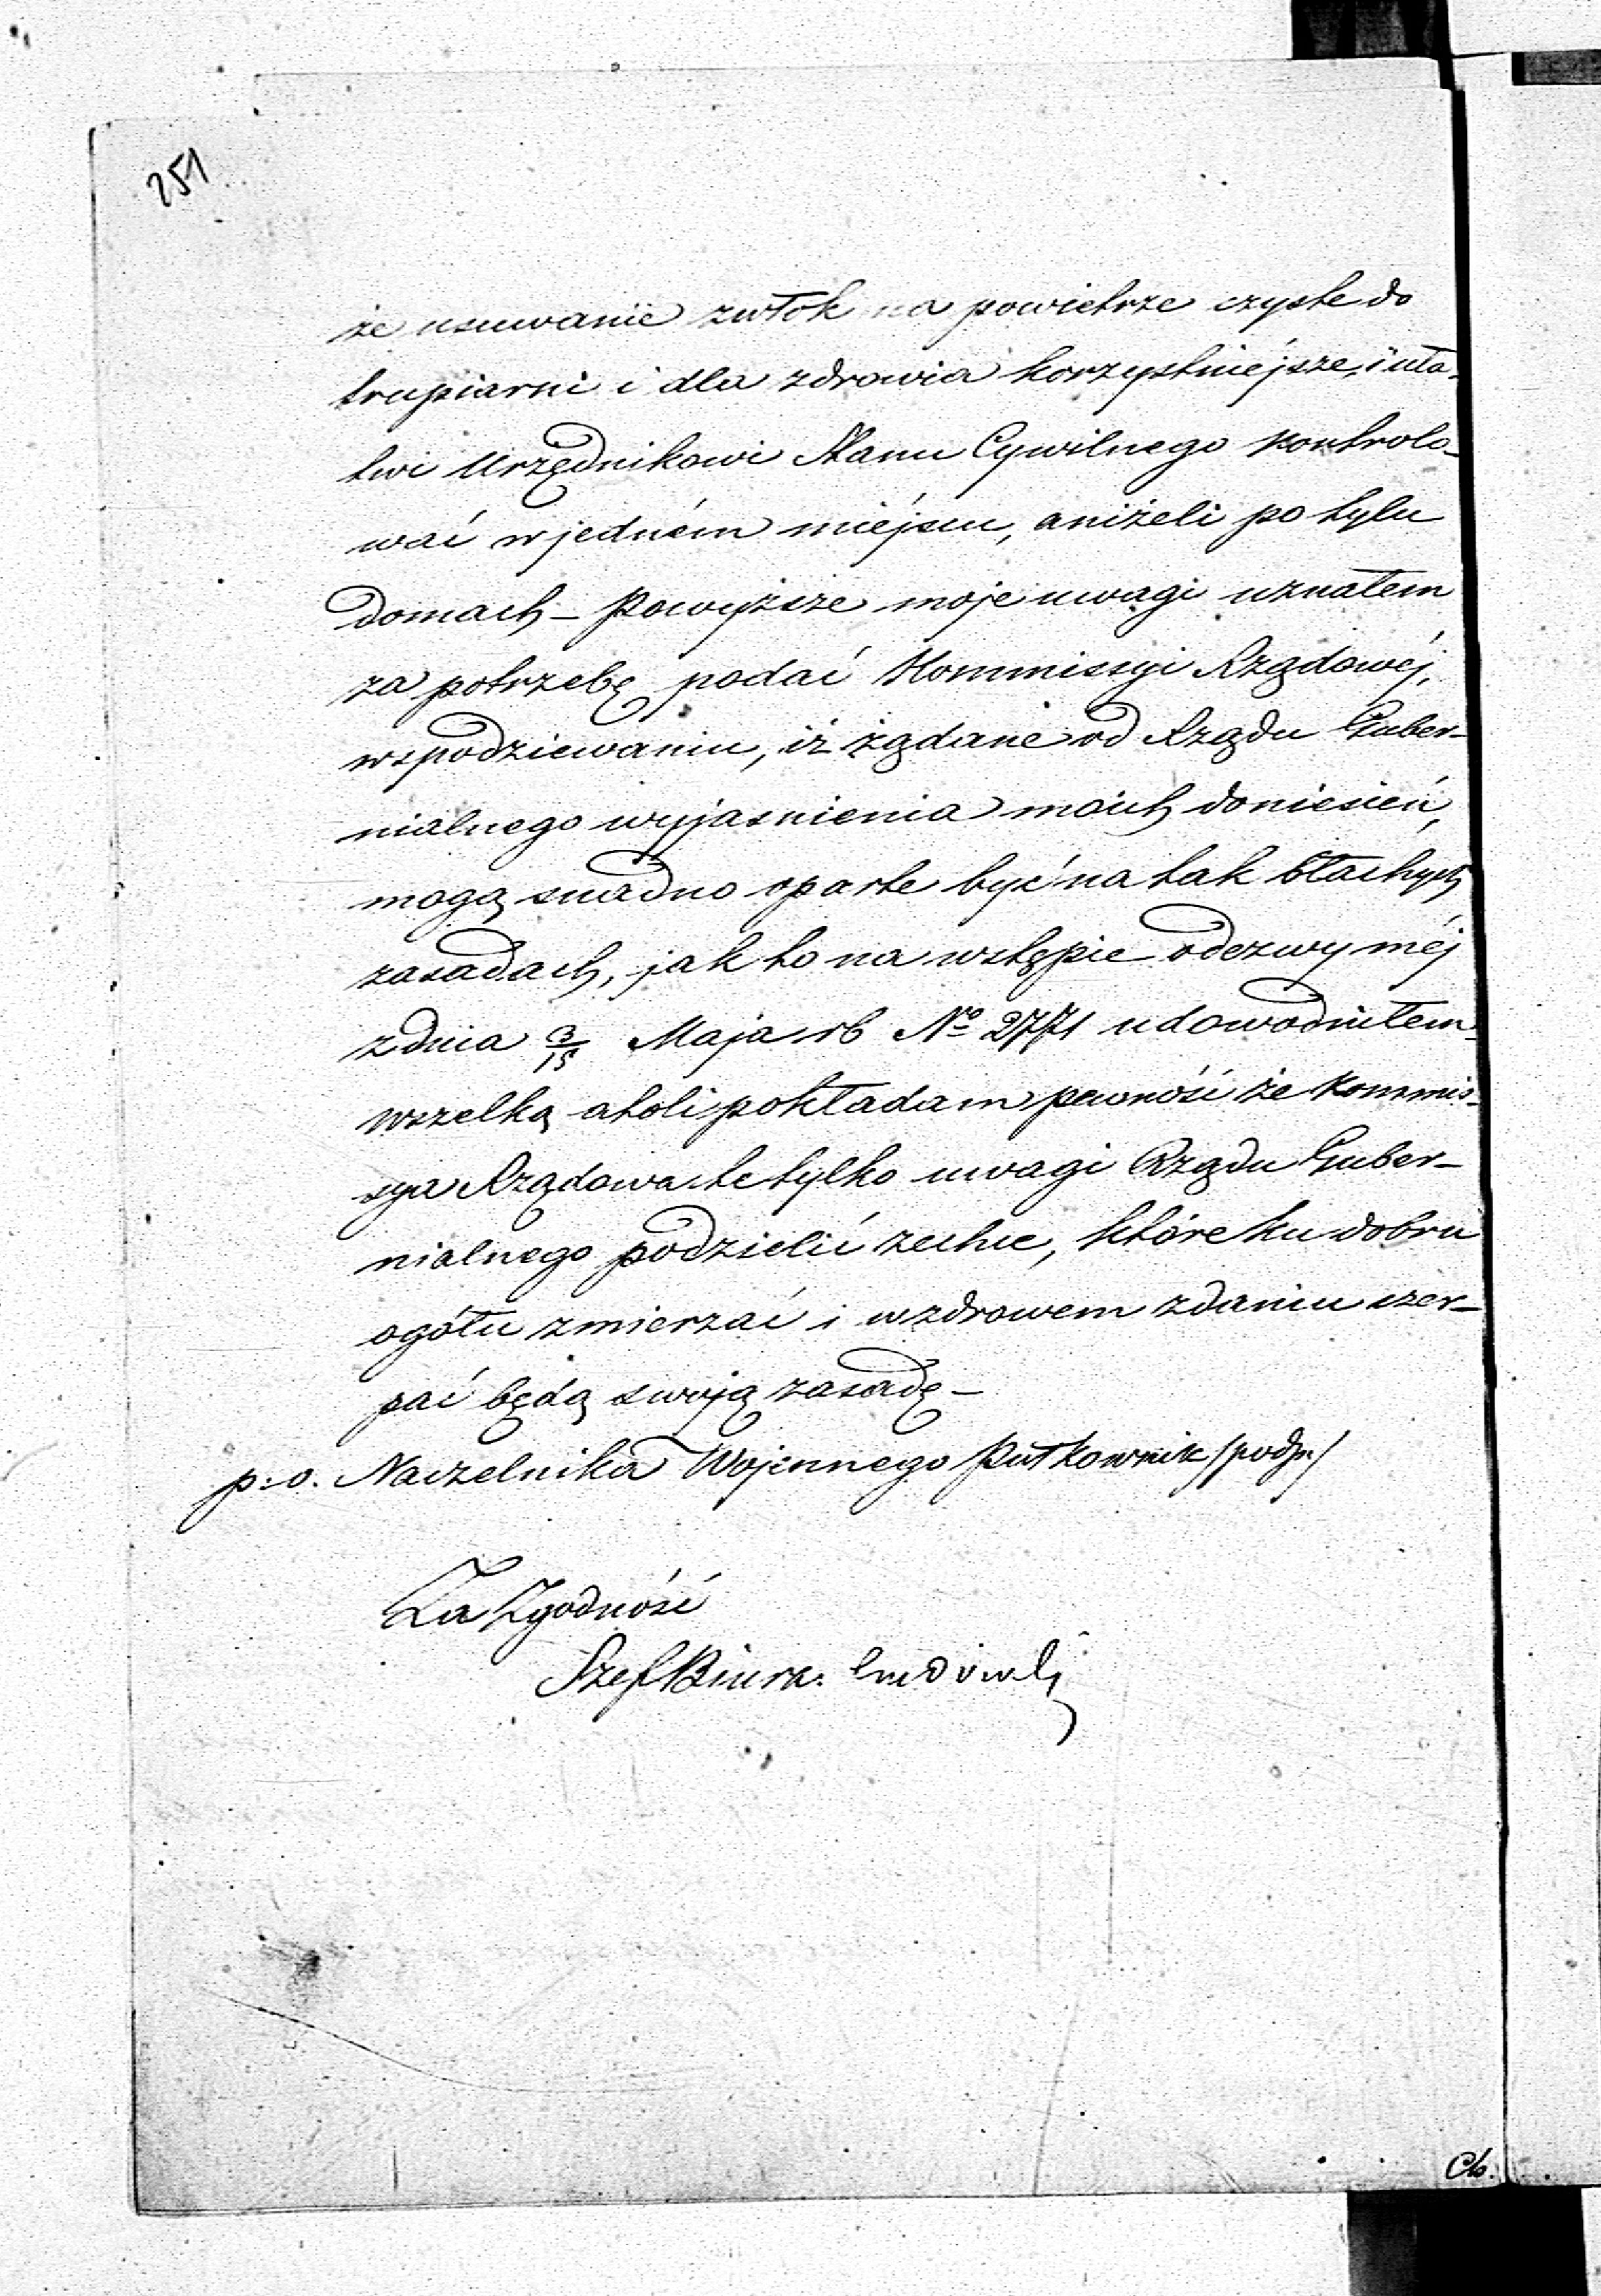 251
że usuwanie zwłok na powietrze czyste do
trupiarni i dla zdrowia korzystniéjsze, i uła-
twi Urzędnikowi Stanu Cywilnego kontrolo-
wać w jedném miéjscu, aniżeli po tylu
domach – Powyższe moje uwagi uznałem
za potrzebę podać Kommissyi Rządowéj,
w spodziewaniu, iż żądane od Rządu Guber-
nialnego wyjasnienia moich doniesień,
mogą snadno oparte być na tak błachych
zasadach, jak to na wstępie odezwy méj
z dnia 3/15 Maja rb Nº 2771 udowodniłem
wszelką atoli pokładam pewność że Kommis-
sya Rządowa te tylko uwagi Rządu Guber-
nialnego podzielić zechce, które ku dobru
ogółu zmierzać i w zdrowem zdaniu czer-
pać będą swoją zasadę –
p. o. Naczelnika Wojennego Pułkownik /podp:/
Za Zgodność
Szef Biura.
Ch.